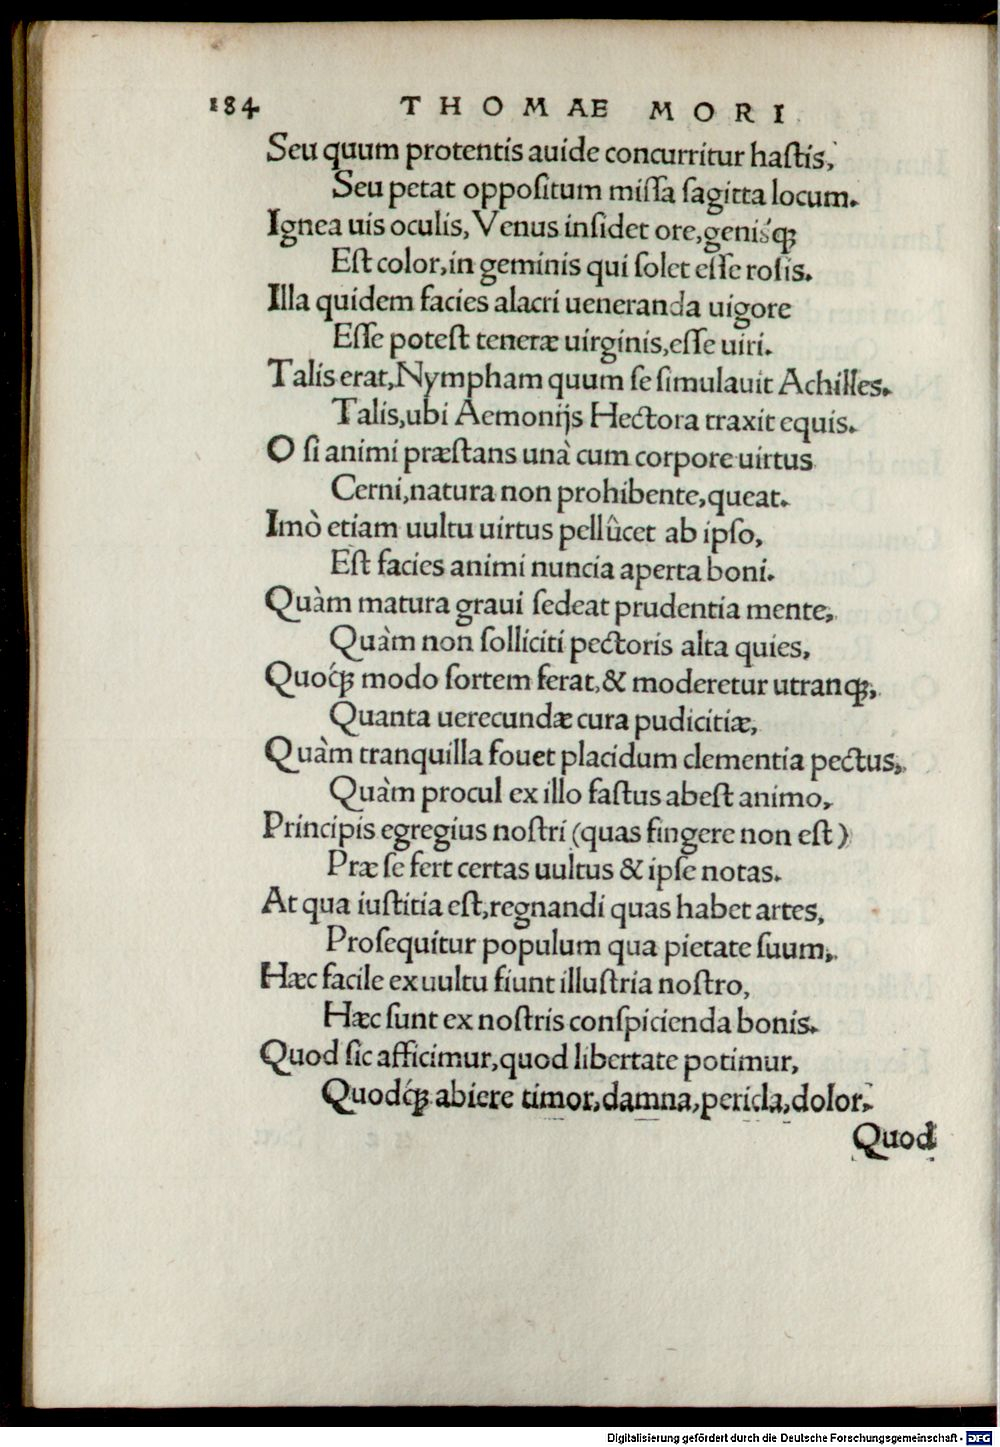 184 THOMAE MORI
Seu quum protentis auide concurritur haſtis,
Seu petat oppoſitum miſſa ſagitta locum.
Ignea uis oculis, Venus inſidet ore, geniśꝗ;
Eſt color, in geminis qui ſolet eſſe roſis.
Illa quidem facies alacri ueneranda uigore
Eſſe poteſt teneræ uirginis, eſſe uiri.
Talis erat, Nympham quum ſe ſimulauit Achilles.
Talis, ubi Aemonijs Hectora traxit equis.
O ſi animi præſtans unà cum corpore uirtus
Cerni, natura non prohibente, queat.
Imò etiam uultu uirtus pellûcet ab ipſo,
Eſt facies animi nuncia aperta boni.
Quàm matura graui ſedeat prudentia mente,
Quàm non ſolliciti pectoris alta quies,
Quoq́; modo ſortem ferat, & moderetur utranꝗ;,
Quanta uerecundæ cura pudicitiæ,
Quàm tranquilla fouet placidum clementia pectus,
Quàm procul ex illo faſtus abeſt animo,
Principis egregius noſtri (quas fingere non eſt)
Præ ſe fert certas uultus & ipſe notas.
At qua iuſtitia eſt, regnandi quas habet artes,
Proſequitur populum qua pietate ſuum,
Hæc facile ex uultu fiunt illuſtria noſtro,
Hæc ſunt ex noſtris conſpicienda bonis.
Quod ſic afficimur, quod libertate potimur,
Quodq́; abiere timor, damna, pericla, dolor,
Quod
Digitalisierung gefördert durch die Deutsche Forschungsgemeinschaft - DFG